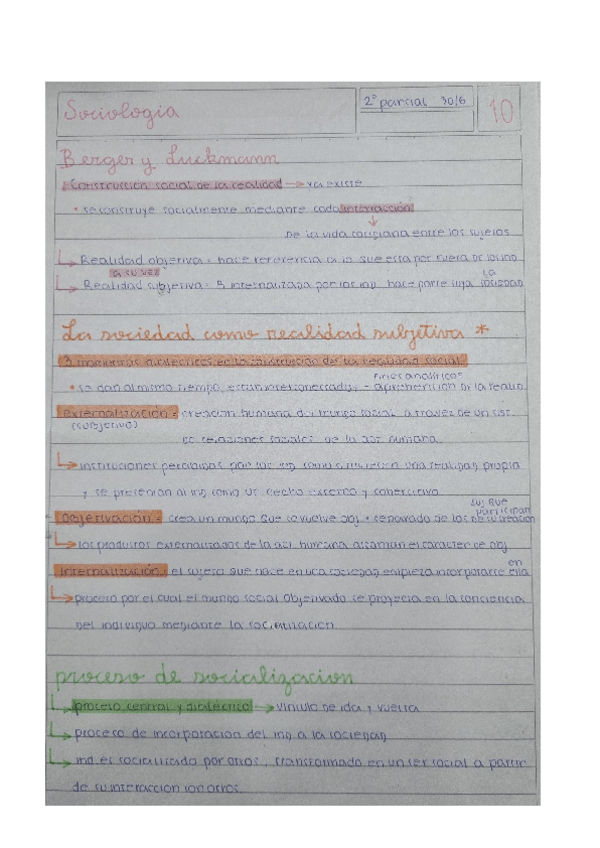 Sociologia
2° parcial 30/6
10
Berger y Luckmann
Construcción social de la realidad → ya existe
• se construye socialmente mediante cada interacción
↓
De la vida cotidiana entre los sujetos
Realidad objetiva: hace referencia a lo que esta por fuera de
a su vez
Realidad subjetiva: internalizada por hace parte suya la sociedad
La sociedad como realidad subjetiva *
3 momentos dialécticos en la construcción de la realidad social
fines analíticos
• se dan al mismo tiempo, estan interconectados - aprehension de la realid.
Externalización: creacion humana del mundo social a travez de un sist.
(subjetivo)
de relaciones sociales de la humana
instituciones percibidas por los ind como si tuviesen una realidad propia
y se presentan al ind como un hecho externo y coercitivo
suj que
participan
Objetivación: crea un mundo que se vuelve obj • separado de los de su creacion
los productos externalizados de la humana alcanzan el caracter de obj
en
Internalización: el sujeto que nace en una sociedad empieza incorporarse ella
proceso por el cual el mundo social objetivado se proyecta en la conciencia
del individuo mediante la socialización
proceso de socializacion
proceso central y dialéctico → vinculo de ida y vuelta
proceso de incorporacion del ind a la sociedad
ind. es socializado por otros, transformado en un ser social a partir
de su interaccion con otros.